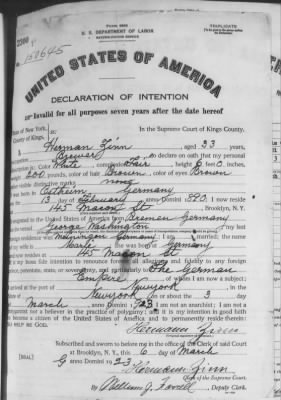 TRIPLICATE
U. S. DEPARTMENT OF LABOR
NATURALIZATION SERVICE
No. 150645
UNITED STATES OF AMERICA
DECLARATION OF INTENTION
Invalid for all purposes seven years after the date hereof
State of New York,
County of Kings,
In the Supreme Court of Kings County.
Herman Zinn, aged 33 years,
Brewer, do declare on oath that my personal
description is: Color White, complexion Fair, height 6 feet 0 inches,
200 pounds, color of hair Brown, color of eyes Brown
visible distinctive marks none
born in Ostheim Germany
13 day of February, anno Domini 1890. I now reside
145 Macon St, Brooklyn, N. Y.
emigrated to the United States of America from Bremen Germany
George Washington; my last
residence was Germany; I am married; the name
Marie; she was born in Germany
145 Macon St
It is my bona fide intention to renounce forever all allegiance and fidelity to any foreign
potentate, state, or sovereignty, and particularly to The German
Empire, of whom I am now a subject;
arrived at the port of New York, in the
New York, on or about the 3 day
March, anno Domini 1923; I am not an anarchist; I am not a
polygamist nor a believer in the practice of polygamy; and it is my intention in good faith
to become a citizen of the United States of America and to permanently reside therein:
SO HELP ME GOD.
Hermann Zinn
Subscribed and sworn to before me in the office of the Clerk of said Court
at Brooklyn, N. Y., this 6 day of March
anno Domini 1923
[SEAL]
Hermann Zinn
Clerk of the Supreme Court.
By William J., Deputy Clerk.